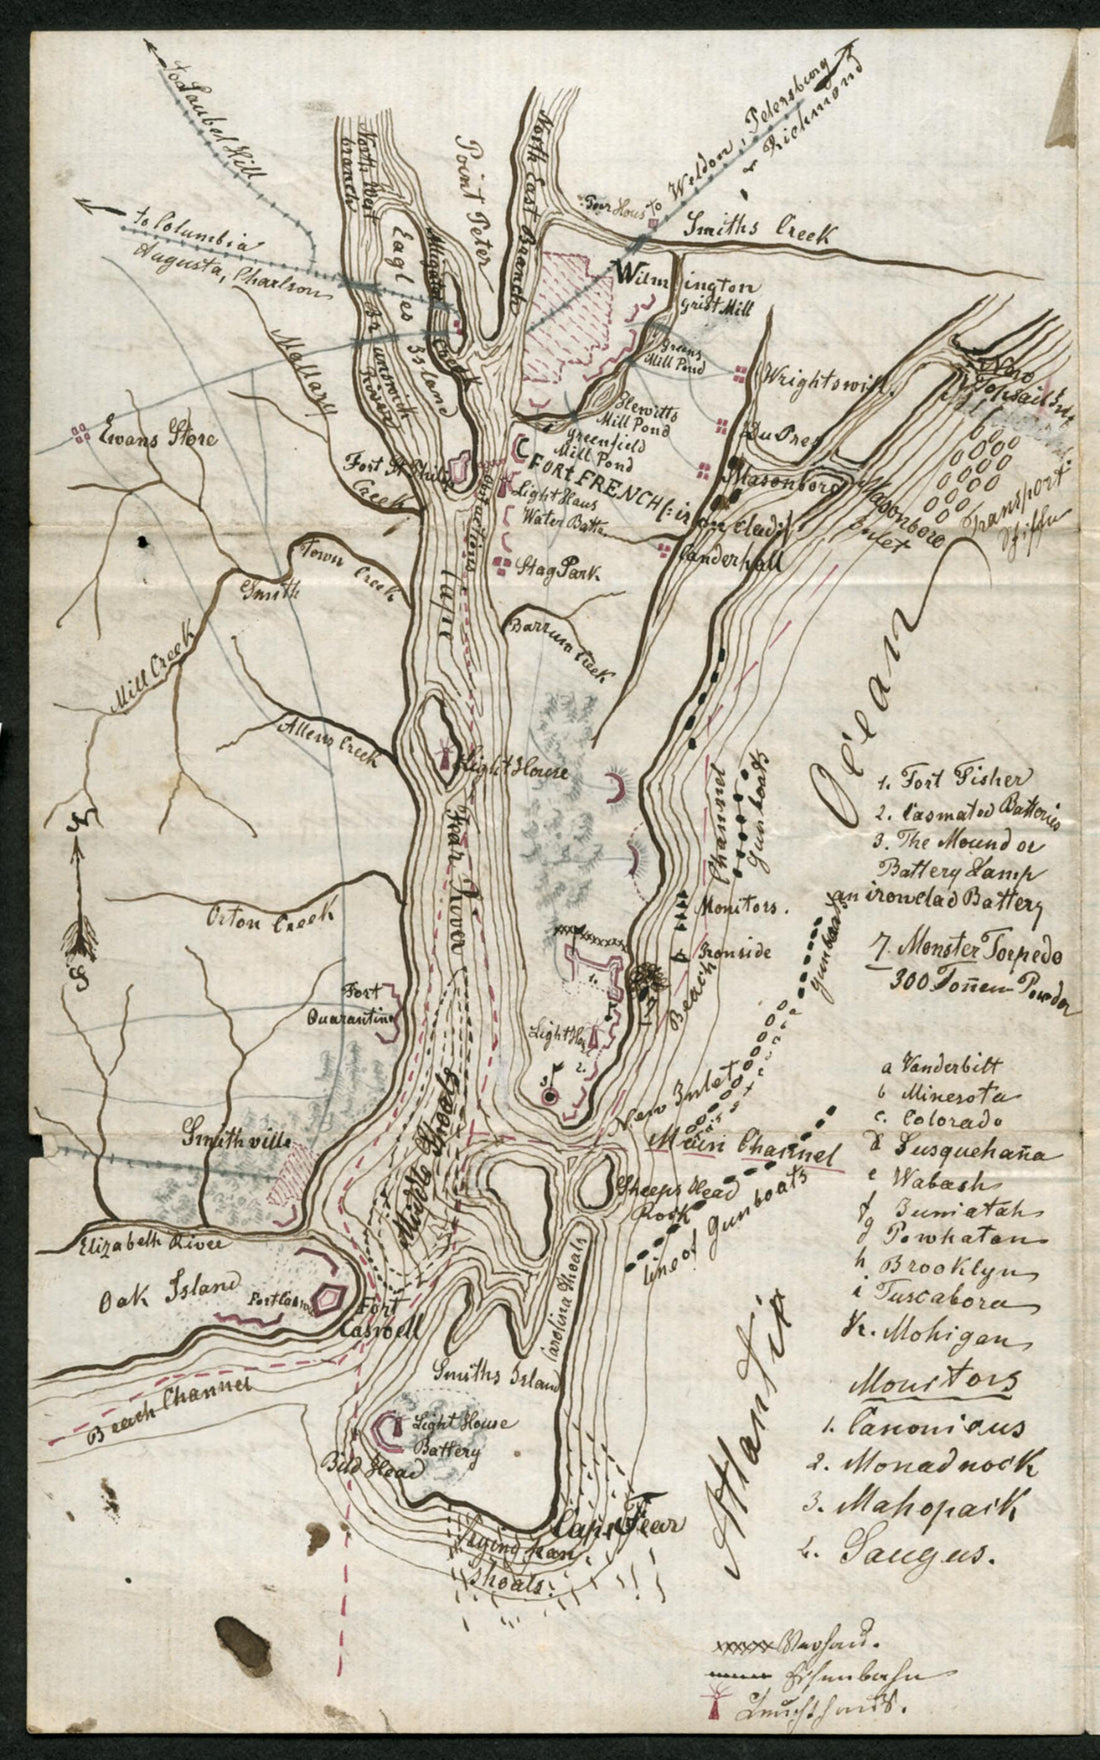 to Laubel Hill
to Columbia
Augusta, Charlson
North West
branch
Point Peter
North East Branch
to Weldon, Petersburg
or Richmond
Smiths Creek
Eagles
Island
Alligator
Creek
Brunswick
River
Wilmington
Grist Mill
Greens
Mill Pond
Hewitts
Mill Pond
Greenfield
Mill Pond
Mallary
Creek
Ewans Store
Fort St Philip
Obstructions
FORT FRENCH (: iron clad :)
Light Haus
Water Batt.
Stag Park
Wrightswill.
DuPres
Masonboro
Canderhall
Masonboro
Inlet
New
Topsail Inl.
Transport
Schiffe
Town Creek
Smith
Mill Creek
Barrum Creek
Allens Creek
Cape
Fear River
Light House
Orton Creek
Fort
Quarantine
Channel
Gunboats
Monitors.
Ironside
Beach
gunboats
1.
Light Haus
2.
3.
7
New Inlet
Main Channel
Sheeps Head
Rock
line of Gunboats
Middle Shoals
Smithville
Elizabeth River
Oak Island
Fort
Caswell
Beach Channel
Carolina Shoals
Smiths Island
Light House
Battery
Bild Head
Cape Fear
Frying Pan
Shoals.
Atlantic
Ocean
N
S
1. Fort Fisher
2. Casmated Batteries
3. The Mound or
Battery Lamp
an ironclad Battery
7. Monster Torpedo
300 Tonnen Powder
a Vanderbilt
b Minesota
c. Colorado
d Susquehaña
e Wabash
f Juniatah
g Powhatan
h Brooklyn
i Tuscabora
k. Mohigan
Monitors
1. Canonicus
2. Monadnock
3. Mahopaik
4. Saugus.
Verhau.
Eisenbahn
Leuchthaus.